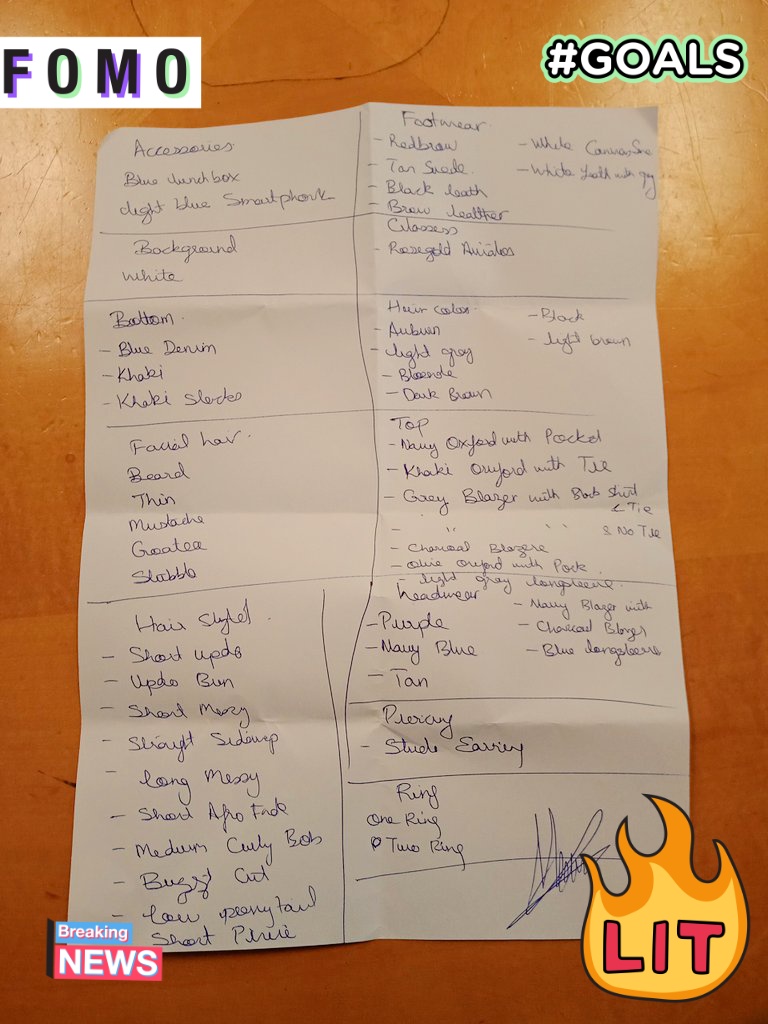 FOMO
#GOALS
Accessories
Blue lunchbox
light blue Smartphork
Background
White
Bottom.
- Blue Denim
- Khaki
- Khaki Slacks
Facial hair.
Beard
Thin
Mustache
Goatea
Stabbb
Hair Style
- Short updo
- Updo Bun
- Short Messy
- Straigt Sideswep
- long Messy
- Short Afro Fade
- Medium Curly Bob
- Buzzt Cut
- low ponytail
Short Pixie
Footwear.
- Redbrow
- Tan Suede.
- Black leath
- Brow leather
- White Canvas
- White Leath with gry
Glassess
- Rosegold Aviatos
Hair color
- Auburn
- light grey
- Bloende
- Dark Brown
- Black
- light brown
Top
- Navy Oxford with Pocket
- Khaki Oxyford with Tie
- Grey Blazer with Black Shirt
& Tie
- " " & No Tie
- Charcoal Blazere
- Olive Oxyford with Pock
- light grey longsleeve.
- Navy Blazer with
- Charcoal Blazer
- Blue longsleeve
headwear
- Purple
- Navy Blue
- Tan
Piercing
- Studs Earring
Ring
One Ring
Two Ring
Breaking
NEWS
LIT